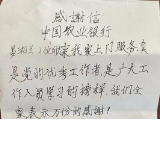 感谢信
中国农业银行
来我家上门服务真
是党的优秀工作者,是广大工
作人员学习的榜样,我们全
家表示万份的感谢!